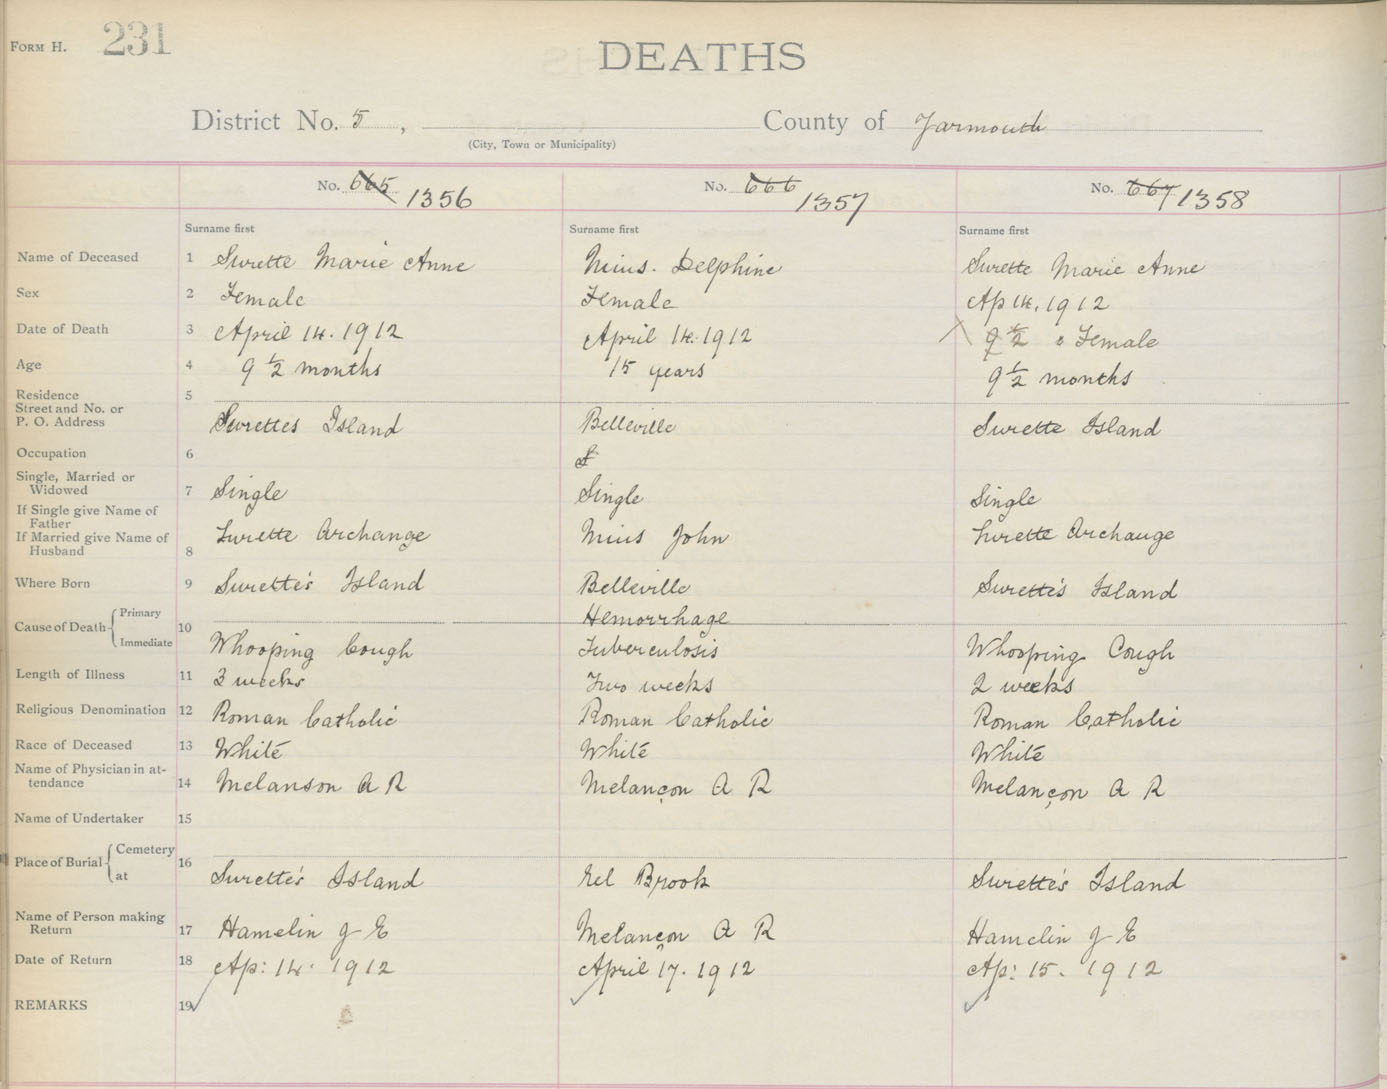 FORM H. 231
DEATHS
District No. 5, County of Yarmouth
(City, Town or Municipality)
No. 665 1356 No. 666 1357 No. 667 1358
Surname first Surname first Surname first
Name of Deceased 1 Surette Marie Anne Mius. Delphine Surette Marie Anne
Sex 2 Female Female Ap 14, 1912
Date of Death 3 April 14. 1912 April 14. 1912 9 1/2 Female
Age 4 9 1/2 months 15 years 9 1/2 months
Residence 5
Street and No. or
P. O. Address Surettes Island Belleville Surette Island
Occupation 6 S
Single, Married or
Widowed 7 Single Single Single
If Single give Name of
Father
If Married give Name of
Husband 8 Surette Archange Mius John Surette Archange
Where Born 9 Surette's Island Belleville Surette's Island
Cause of Death 10 Primary Hemorrhage
Immediate Whooping Cough Tuberculosis Whooping Cough
Length of Illness 11 3 weeks Two weeks 2 weeks
Religious Denomination 12 Roman Catholic Roman Catholic Roman Catholic
Race of Deceased 13 White White White
Name of Physician in at-
tendance 14 Melanson A R Melançon A R Melançon A R
Name of Undertaker 15
Place of Burial 16 Cemetery
at Surette's Island Eel Brook Surette's Island
Name of Person making
Return 17 Hamelin J E Melançon A R Hamelin J E
Date of Return 18 Ap: 14. 1912 April 17. 1912 Ap: 15. 1912
REMARKS 19